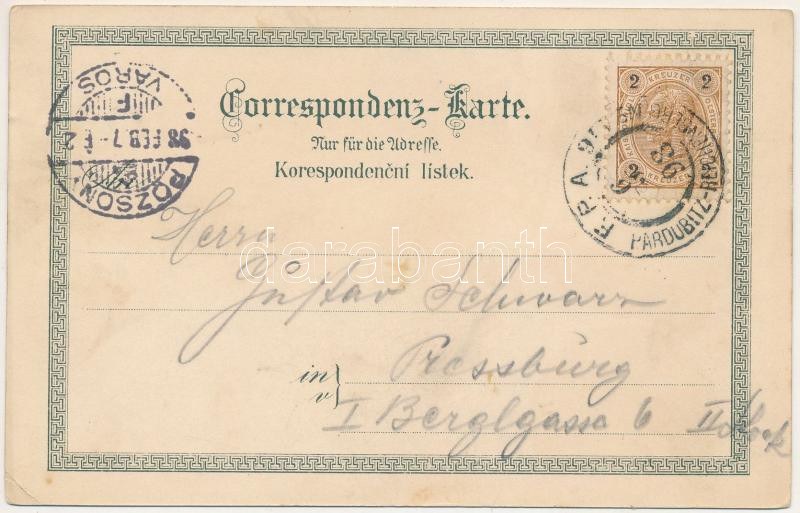 Correspondenz-Karte.
Nur für die Adresse.
Korespondenční lístek.
2 KREUZER 2
2
KREUZER
F. P. A.
98
PARDUBITZ-
POZSONY
98 FEB. 7
VÁROS
F
darabanth
Herrn
Gustav Schwarz
in
v
Pressburg
I Berglgasse 6 II Stock